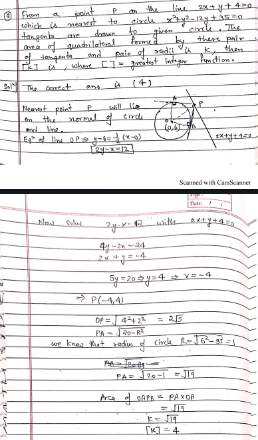 ③ From a point P on the line 2x+y+4=0
which is nearest to circle x²+y²-12y+35=0
tangents are drawn to given circle. The
area of quadrilateral formed by these pair
of tangents and pair of radii is K, then
[K] is, where [ ] = greatest integer function.
Solⁿ The correct ans is (4)
Nearest point P will lie
on the normal of given
and line.
Eqⁿ of line OP ⇒ y-6=½(x-0)
2y-x=12
A
P
O
(0,6)
2x+y+4=0
Scanned with CamScanner
Date: / /
Now solve 2y-x=12 with 2x+y+4=0
4y-2x=24
2x+y=-4
5y=20 ⇒ y=4 ⇒ x=-4
⇒ P(-4,4)
OP = √4²+2² = 2√5
PA = √20-R²
we know that radius of circle R = √6²-35 = 1
PA = √20-1 = √19
Area of OAPB = PA×OA
= √19
K = √19
[K] = 4